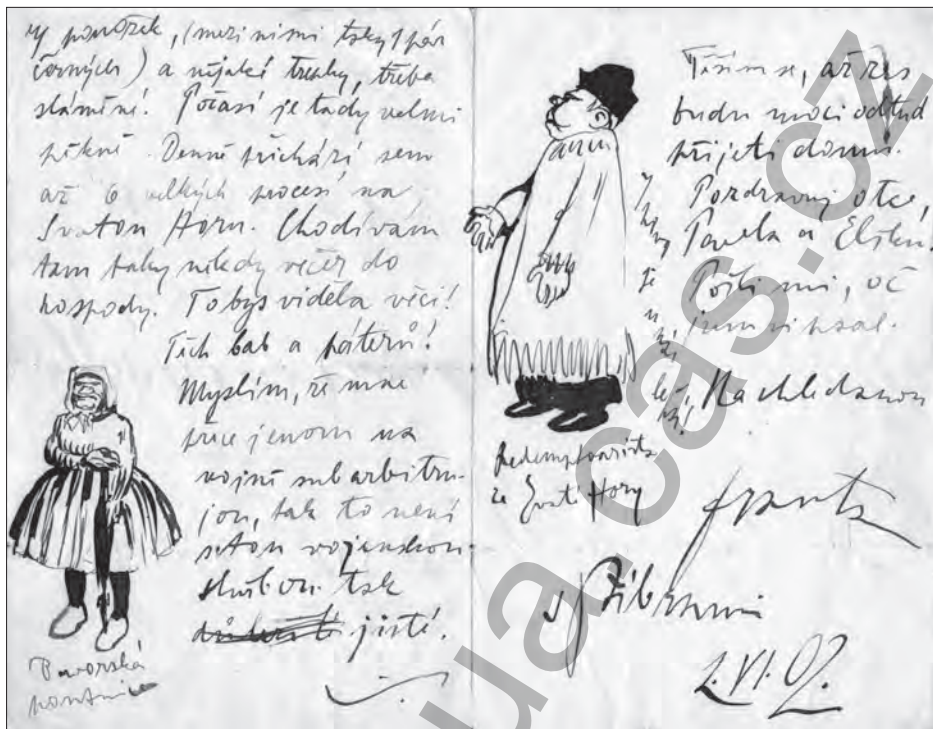 4 ponožek, (mezi nimi taky 1 pár
černých) a nějaké trepky, třeba
sláměné! Počasí je tady velmi
pěkné. Denně přichází sem
až 6 velkých procesí na
Svatou Horu. Chodívám
tam taky někdy večer do
hospody. To bys viděla věci!
Těch bab a páterů!
Myslím, že mne
přece jenom na
vojně subarbitru-
jou, tak to není
s tou vojenskou
službou tak
jisté.
Bavorská
poutnice
Redemptorista
ze Svaté Hory
Těším se, až zas
budu moci odtud
přijeti domů.
Pozdravuj otce,
Pavla a Elišku.
Pošli mi, oč
jsem ti psal.
Na shledanou
Franta
V Příbrami
2. VI. 02.
ua.cas.cz